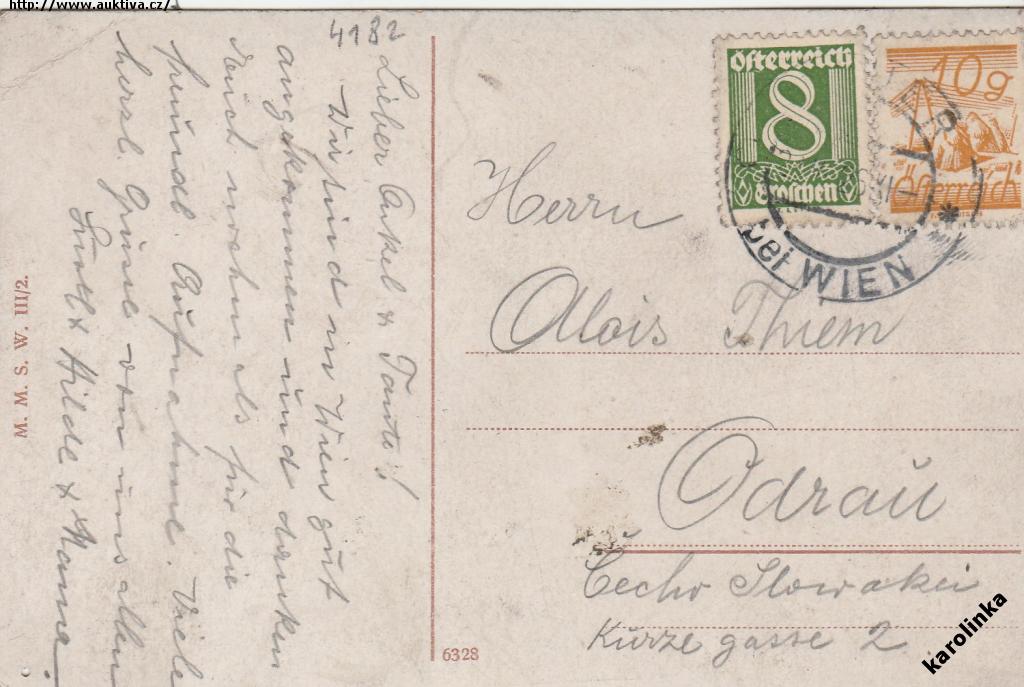 http://www.auktiva.cz/
4182
Lieber Onkel & Tante!
Wir sind in Wien gut
angekommen und danken
Euch nochmals für die
freundl. Aufnahme. Viele
herzl. Grüße von uns allen
Hilde & Mama.
M. M. S. W. III/2.
6328
Österreich
8
Groschen
10g
Österreich
bei WIEN
Herrn
Alois Thiem
Odrau
Čecho Slowakei
Kurze gasse 2.
karolinka